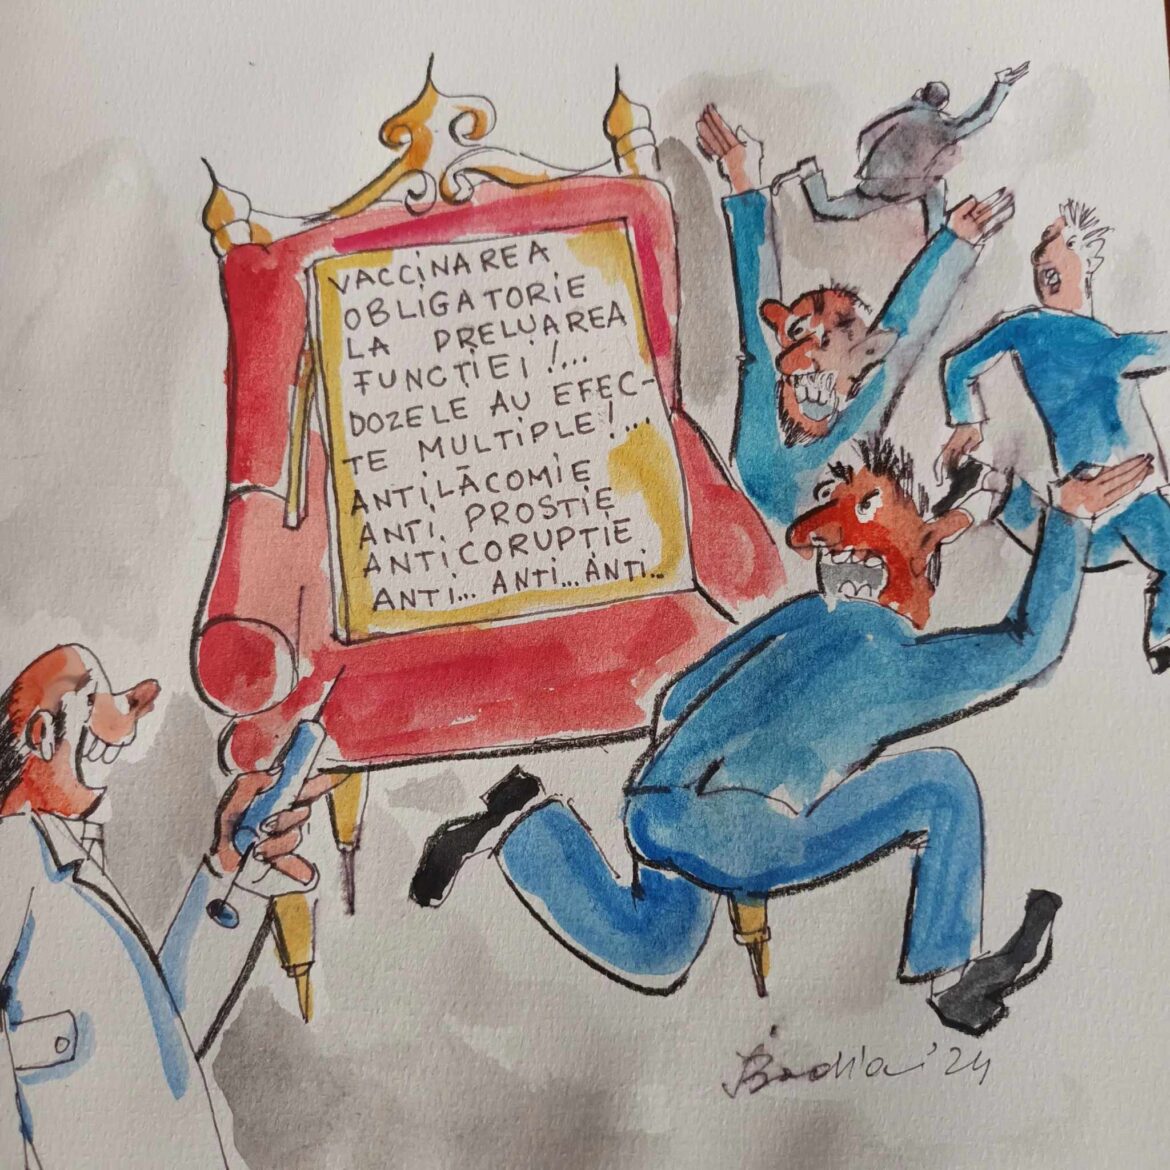 VACCINAREA
OBLIGATORIE
LA PRELUAREA
FUNCȚIEI!...
DOZELE AU EFEC-
TE MULTIPLE!...
ANTILĂCOMIE
ANTI. PROSTIE
ANTICORUPTIE
ANTI... ANTI... ANTI..
'24